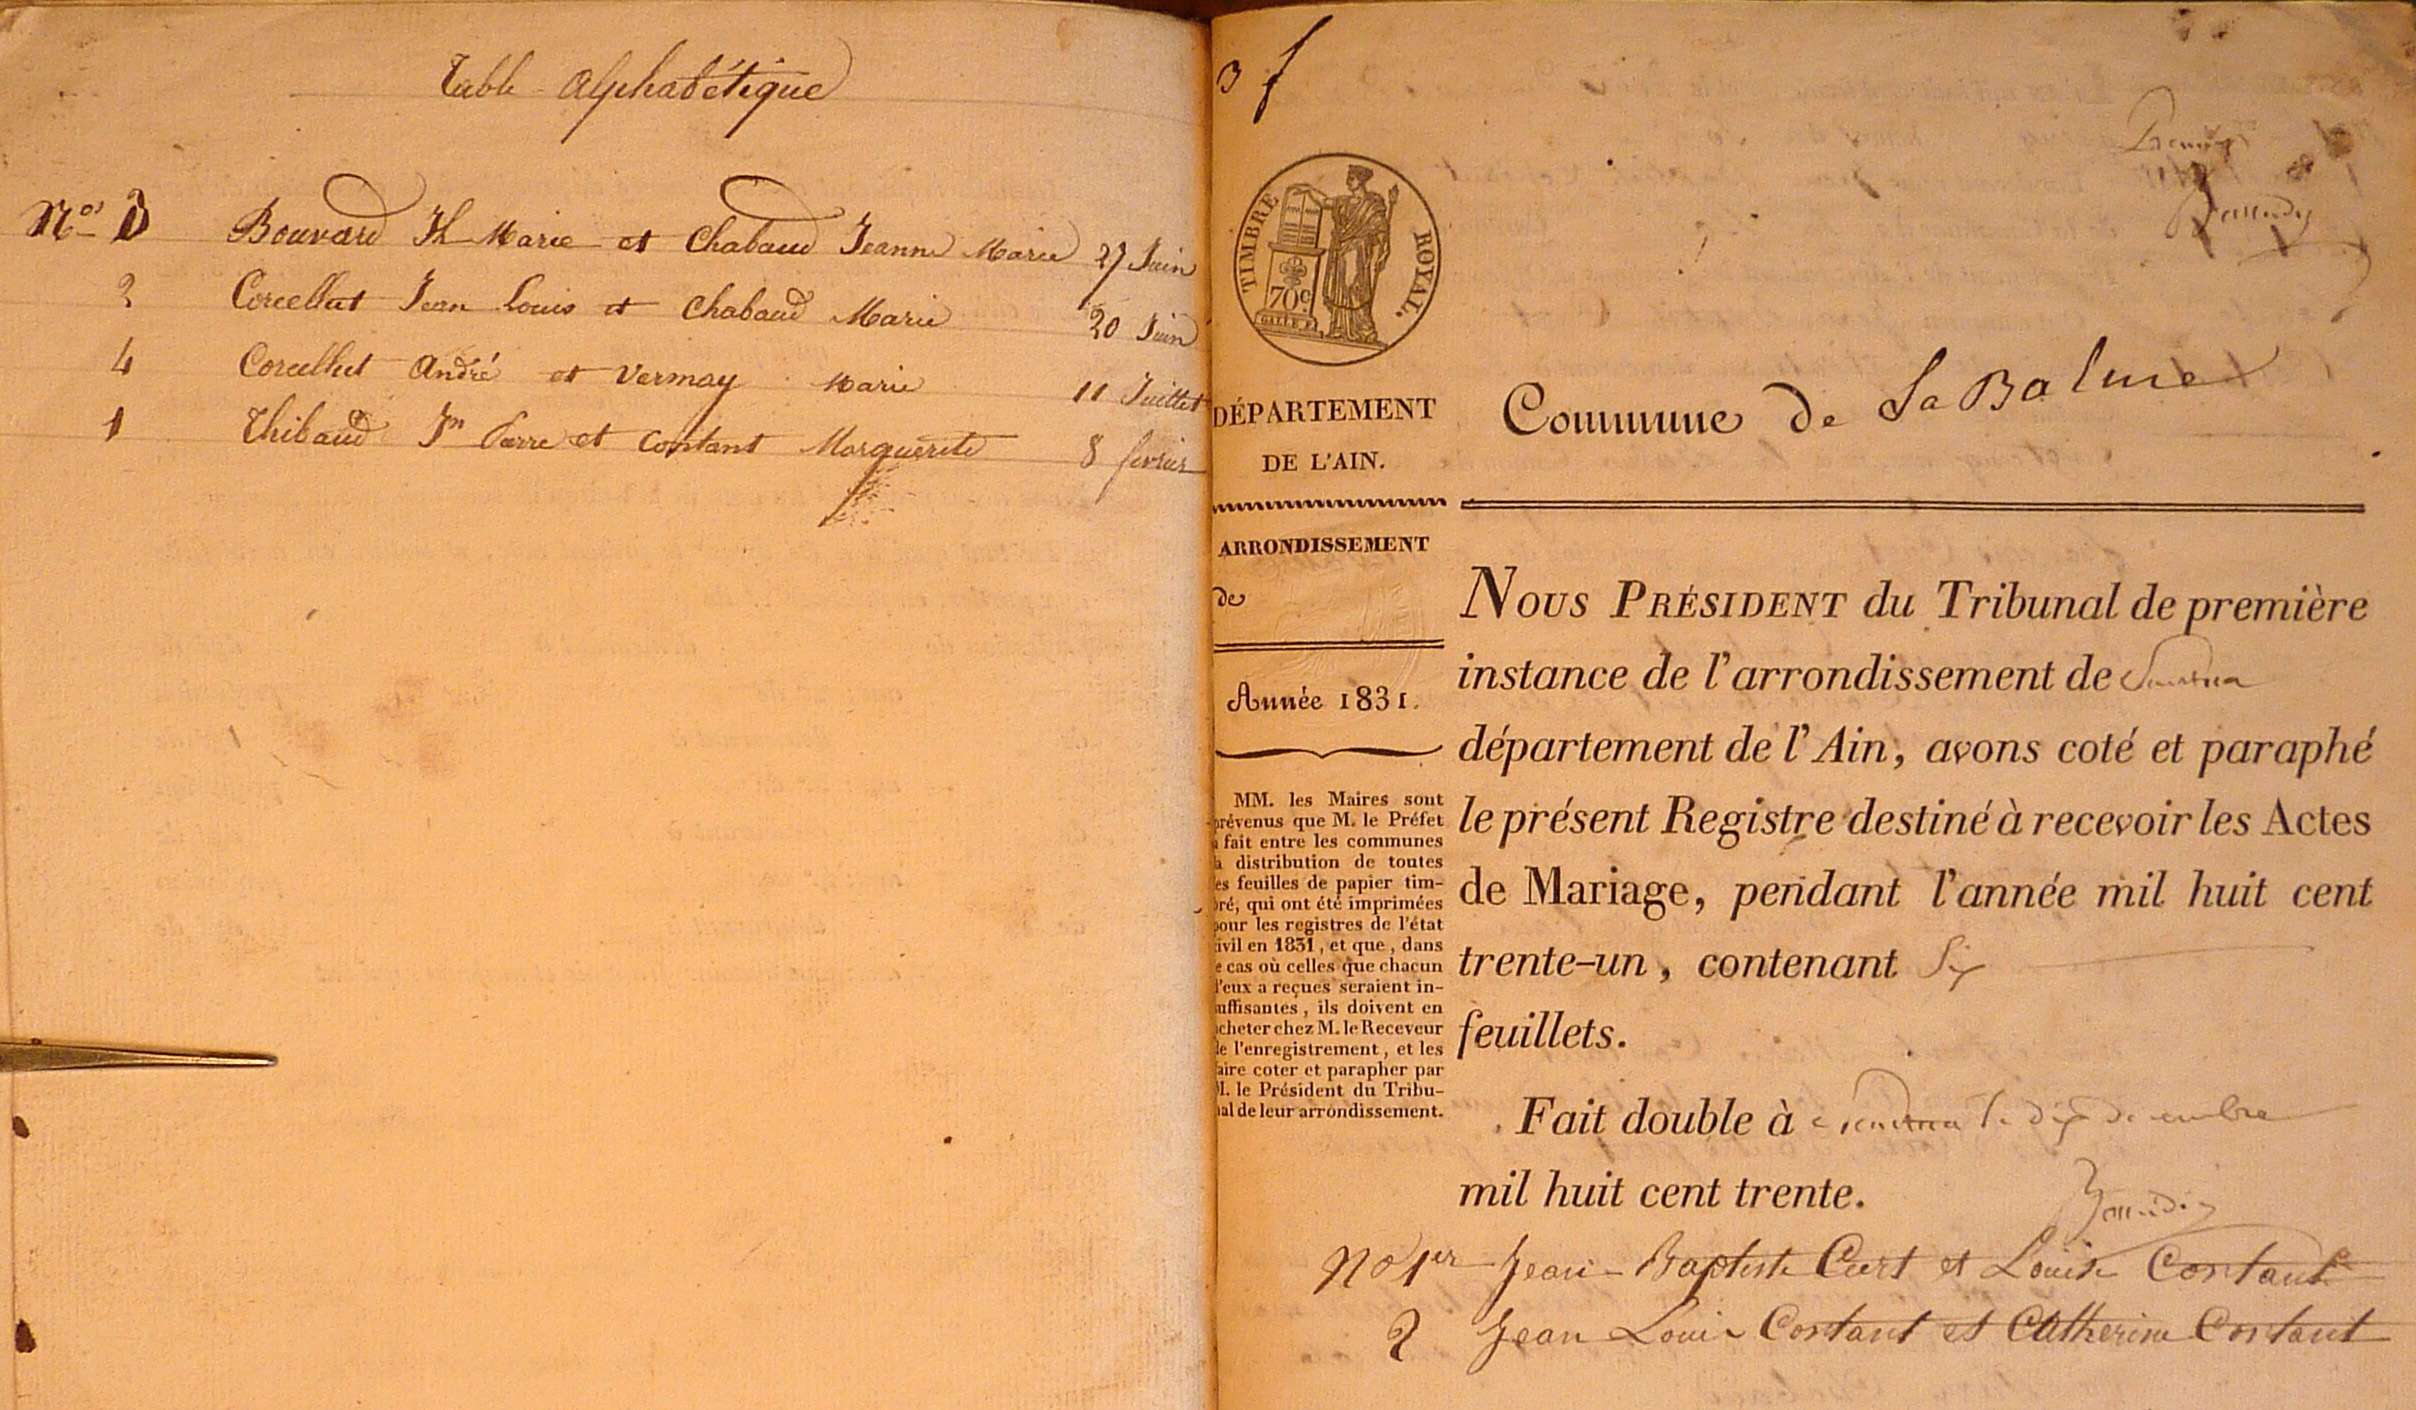 Table Alphabétique
Nos 3 Bouvard Jh Marie et Chabaud Jeanne Marie 27 Juin
2 Corcellut Jean Louis et Chabaud Marie 20 Juin
4 Corcellut André et Vermay Marie 11 Juillet
1 Thibaud Jn Pierre et Contant Marguerite 8 février
3 f
TIMBRE ROYAL.
70c.
GALLE F.
DÉPARTEMENT
DE L'AIN.
ARRONDISSEMENT
de
Année 1831.
MM. les Maires sont
prévenus que M. le Préfet
a fait entre les communes
la distribution de toutes
les feuilles de papier tim-
bré, qui ont été imprimées
pour les registres de l'état
civil en 1831, et que, dans
le cas où celles que chacun
d'eux a reçues seraient in-
suffisantes, ils doivent en
acheter chez M. le Receveur
de l'enregistrement, et les
faire coter et parapher par
M. le Président du Tribu-
nal de leur arrondissement.
Premier
Commune de La Balme
NOUS PRÉSIDENT du Tribunal de première
instance de l'arrondissement de Nantua
département de l'Ain, avons coté et paraphé
le présent Registre destiné à recevoir les Actes
de Mariage, pendant l'année mil huit cent
trente-un, contenant Six
feuillets.
Fait double à Nantua le dix décembre
mil huit cent trente.
No 1er Jean-Baptiste Curt et Louise Contant
2 Jean Louis Contant et Catherine Contant